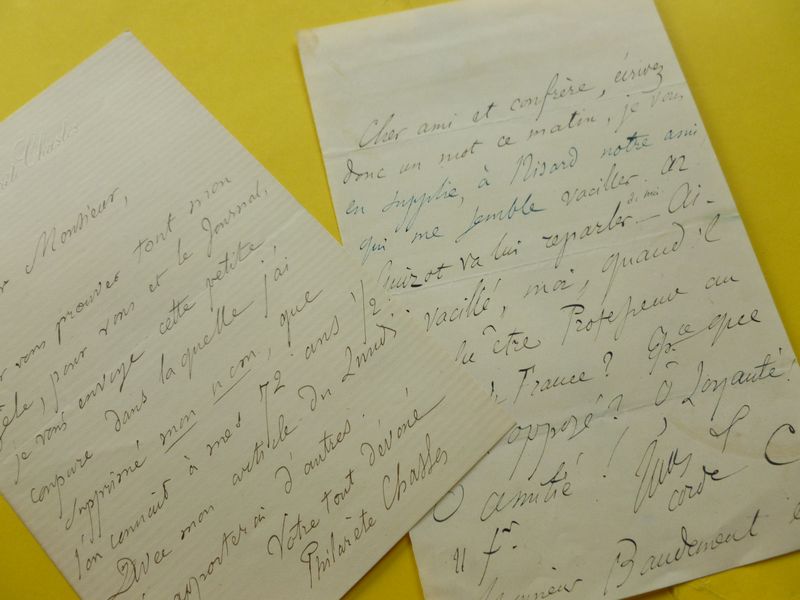 Chasles
Monsieur,
vous prouver tout mon
zèle, pour vous et le Journal,
je vous envoye cette petite
conpure dans laquelle j'ai
supprimé mon nom, que
l'on connait à mes 72 ans 1/2.
Avec mon article du Lundi
apporterai d'autres.
Votre tout dévoué
Philarète Chasles
Cher ami et confrère, écrivez
donc un mot ce matin, je vous
en supplie, à Nisard notre ami,
qui me semble vaciller. Mr
Guizot va lui reparler de moi. — Ai-
vacillé, moi, quand il
être Professeur au
France? que
opposé? Ô Loyauté!
Ô amitié!
11 fr.
Monsieur Baudement